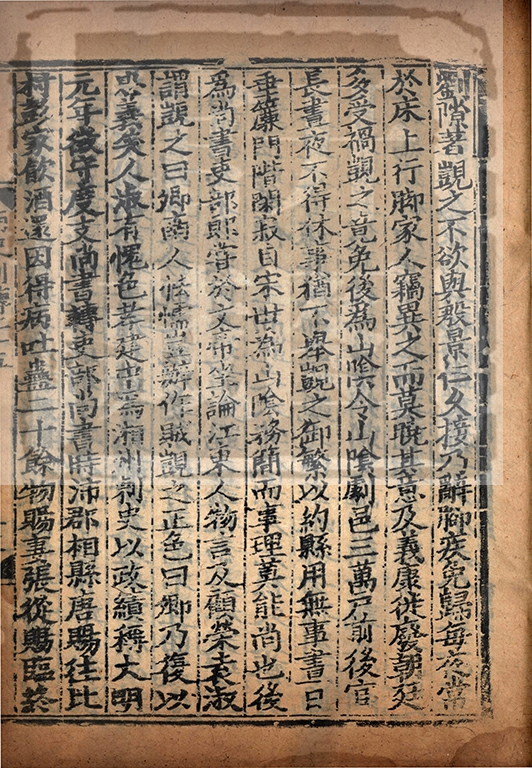 劉隙著覬之不欲與殷景仁久接乃辭腳疾免歸每夜常
於床上行腳家人竊異之而莫曉其意及義康徙廢朝廷
多受禍覬之竟免後為山陰令山陰劇邑三萬戶前後官
長晝夜不得休事猶不舉覬之御繁以約縣用無事晝日
垂簾門階閑寂自宋世為山陰務簡而事理莫能尚也後
為尚書吏部郎嘗於文帝坐論江東人物言及顧榮袁淑
謂覬之曰卿南人怯懦豈辦作賊覬之正色曰卿乃復以
忠義笑人淑有愧色孝建中為湘州刺史以政績稱大明
元年徵守度支尚書轉吏部尚書時沛郡相縣唐賜往比
村彭家飲酒還因得病吐蠱二十餘物賜妻張從賜臨終